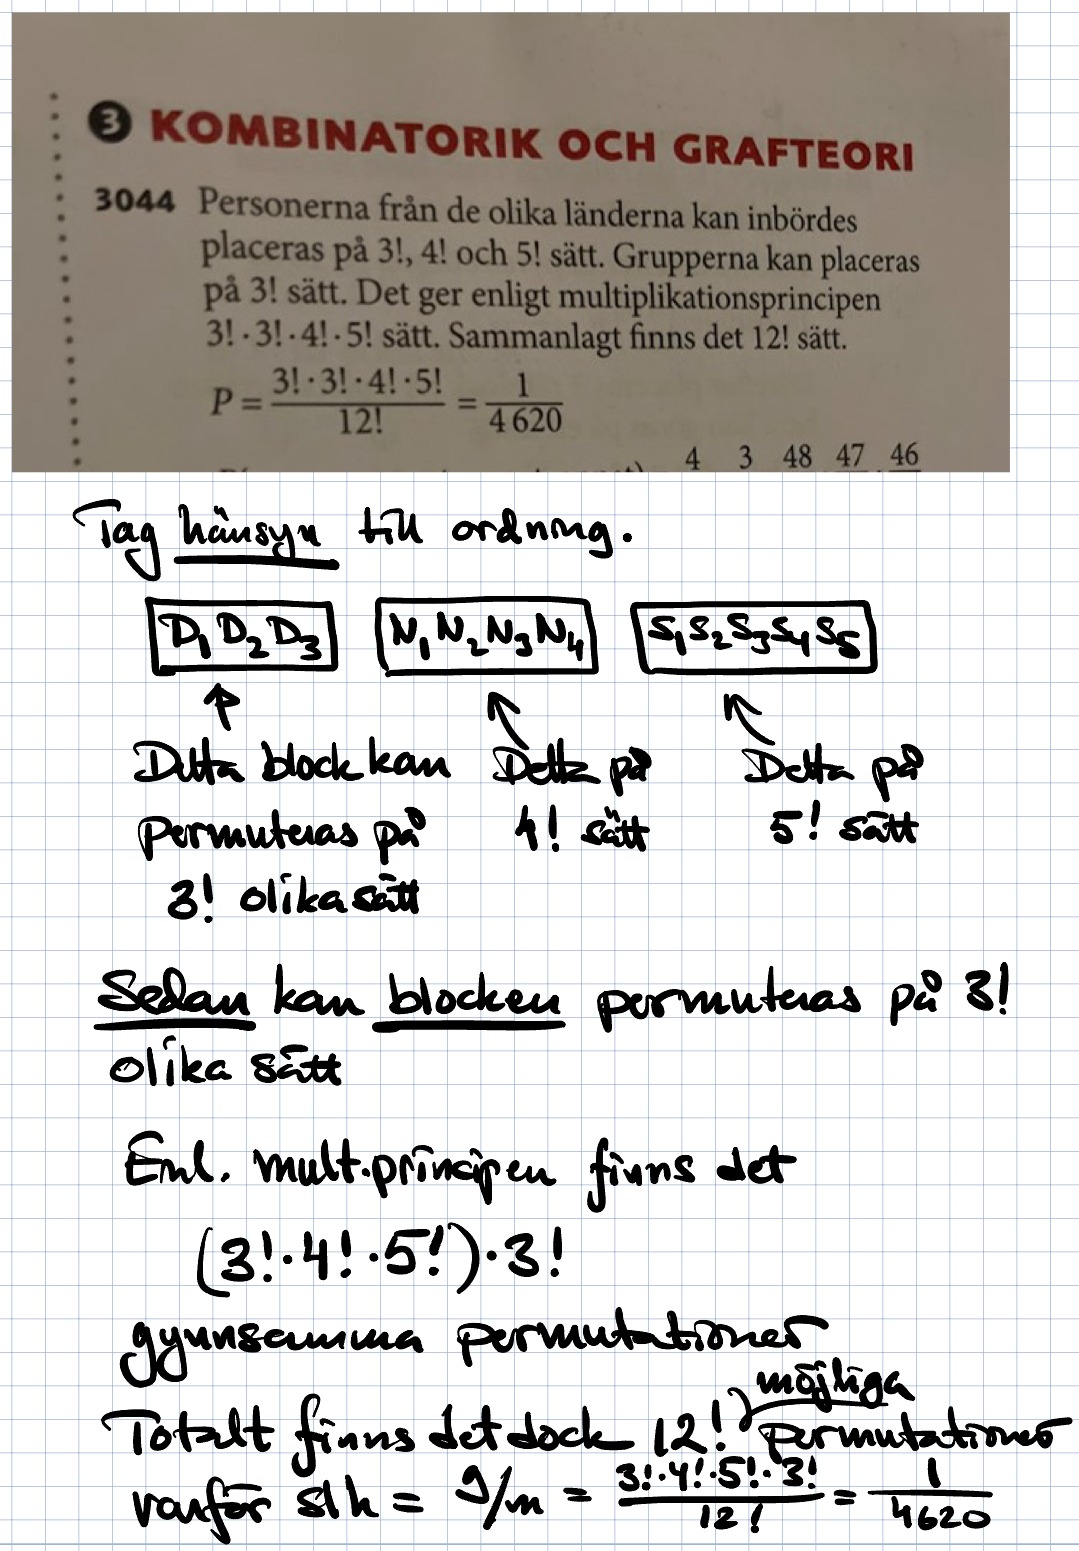 3 KOMBINATORIK OCH GRAFTEORI
3044 Personerna från de olika länderna kan inbördes
placeras på 3!, 4! och 5! sätt. Grupperna kan placeras
på 3! sätt. Det ger enligt multiplikationsprincipen
3! · 3! · 4! · 5! sätt. Sammanlagt finns det 12! sätt.
P = 3! · 3! · 4! · 5! / 12! = 1 / 4 620
4 3 48 47 46
Tag hänsyn till ordning.
D₁D₂D₃ N₁N₂N₃N₄ S₁S₂S₃S₄S₅
Detta block kan Detta på Detta på
permuteras på 4! sätt 5! sätt
3! olika sätt
Sedan kan blocken permuteras på 3!
olika sätt
Enl. mult.principen finns det
(3!·4!·5!)·3!
gynnsamma permutationer
möjliga
Totalt finns det dock 12! permutationer
varför slh = g/m = 3!·4!·5!·3! / 12! = 1 / 4620